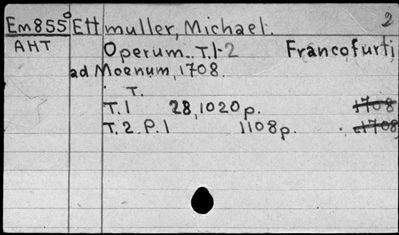 Em855° Ettmuller, Michael. 2
AHT Operum.. T.1-2 Francofurti
ad Moenum, 1708.
T.
T.1 28,1020p. 1708
T.2.P.1 1108p. 1708